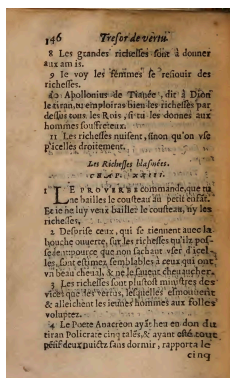 146 Tresor de vertu
8 Les grandes richesses sont à donner
aux amis.
9 Ie voy les femmes se resiouir des
richesses.
10 Apollonius de Tianée, dit à Dion
le tiran, tu emploiras bien les richesses par
dessus tous les Rois, si tu les donnes aux
hommes souffreteux.
11 Les richesses nuisent, sinon qu'on vse
d'icelles droitement.
Les Richesses blasmées.
CHAP. XXIII.
1 LE PROVERBE commande, que tu
ne bailles le cousteau au petit enfāt.
Et ie ne luy veux bailler le cousteau, ny les
richesses.
2 Desprise ceux, qui se tiennent auec la
bouche ouuerte, sur les richesses qu'ilz pos-
sedent: pource que non sachant vser d'icel
les, sont estimez semblables à ceux qui ont
vn beau cheual, & ne le sauent cheuaucher.
3 Les richesses sont plustost ministres des
vices que des vertus, lesquelles esmouuent
& alleichent les ieunes hommes aux folles
voluptez.
4 Le Poete Anacreon ayāt heu en don du
tiran Policrate cinq talēs, & ayant esté tout
pésif deux nuictz sans dormir, rapporta le
cinq